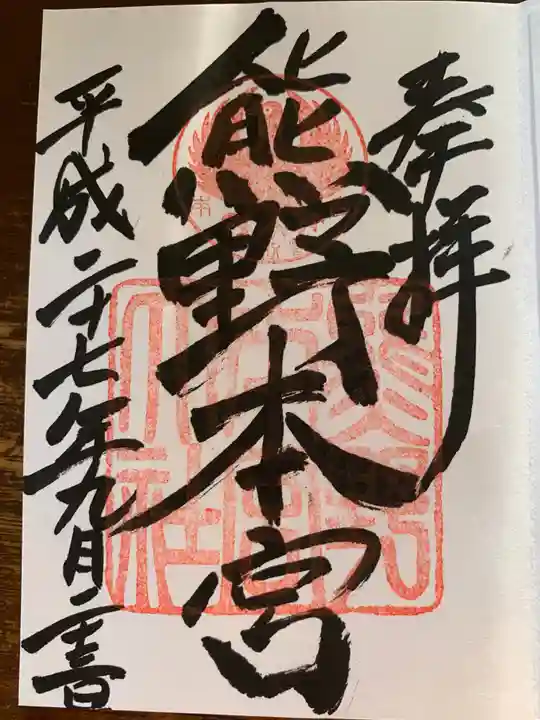 奉拝
熊野本宮
平成二十七年九月